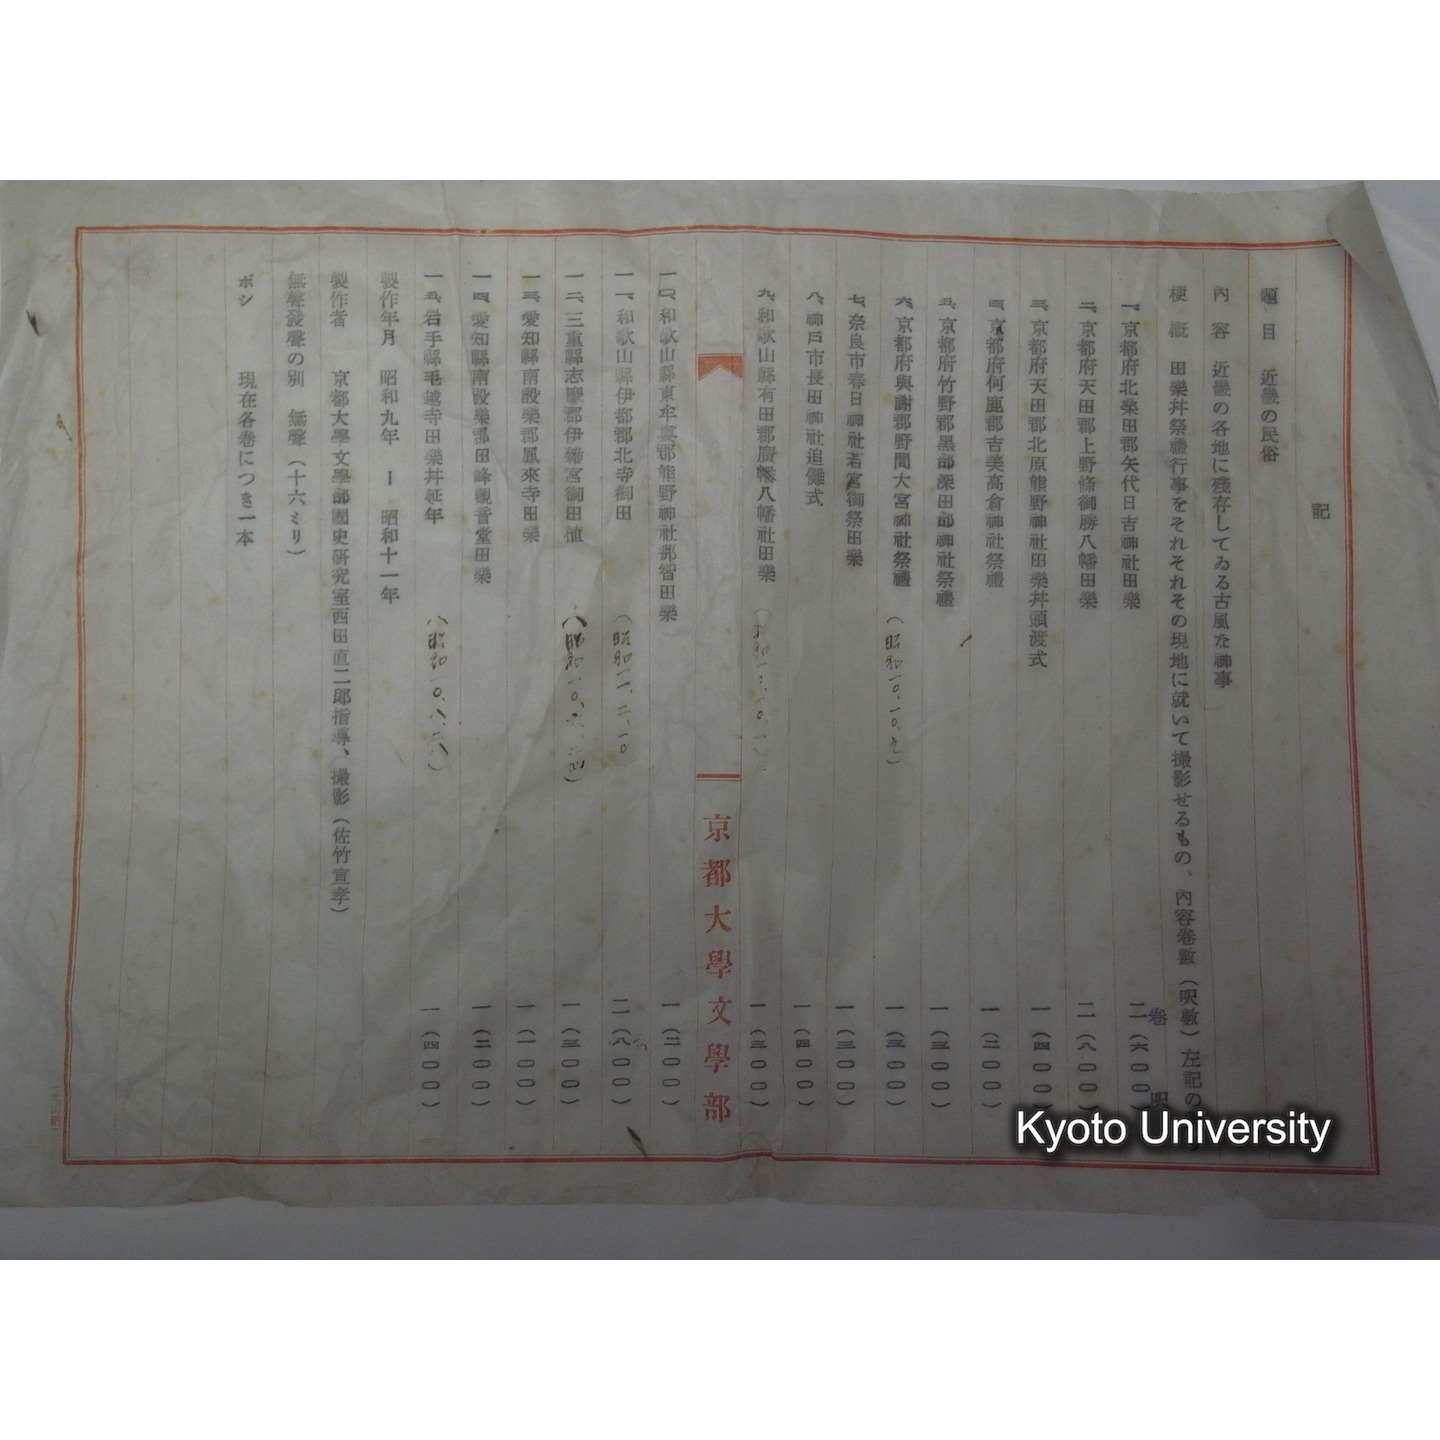 記
題 目 近畿の民俗
內 容 近畿の各地に殘存してゐる古風な神事
梗 概 田樂幷祭禮行事をそれぞれその現地に就いて撮影せるもの、內容卷數(呎數)左記の
卷 呎
一、京都府北桑田郡矢代日吉神社田樂 二(六〇〇)
二、京都府天田郡上野條御勝八幡田樂 二(八〇〇)
三、京都府天田郡北原熊野神社田樂幷頭渡式 一(四〇〇)
四、京都府何鹿郡吉美高倉神社祭禮 一(二〇〇)
五、京都府竹野郡黑部深田部神社祭禮 一(三〇〇)
六、京都府與謝郡野間大宮神社祭禮 (昭和一〇、一〇、九) 一(三〇〇)
七、奈良市春日神社若宮御祭田樂 一(三〇〇)
八、神戶市長田神社追儺式 一(四〇〇)
九、和歌山縣有田郡廣幡八幡社田樂 一(三〇〇)
京都大學文學部
一〇、和歌山縣東牟婁郡熊野神社那智田樂 一(二〇〇)
一一、和歌山縣伊都郡北寺御田 (昭和一一、二、一〇 二(八〇〇)
一二、三重縣志摩郡伊雜宮御田植 (昭和一〇、六、二四) 一(三〇〇)
一三、愛知縣南設樂郡鳳來寺田樂 一(一〇〇)
一四、愛知縣南設樂郡田峰觀音堂田樂 一(二〇〇)
一五、岩手縣毛越寺田樂幷延年 (昭和一〇、八、二八) 一(四〇〇)
製作年月 昭和九年 ー 昭和十一年
製作者 京都大學文學部國史硏究室西田直二郎指導、撮影(佐竹宣孝)
無聲發聲の別 無聲(十六ミリ)
ポジ 現在各卷につき一本
Kyoto University